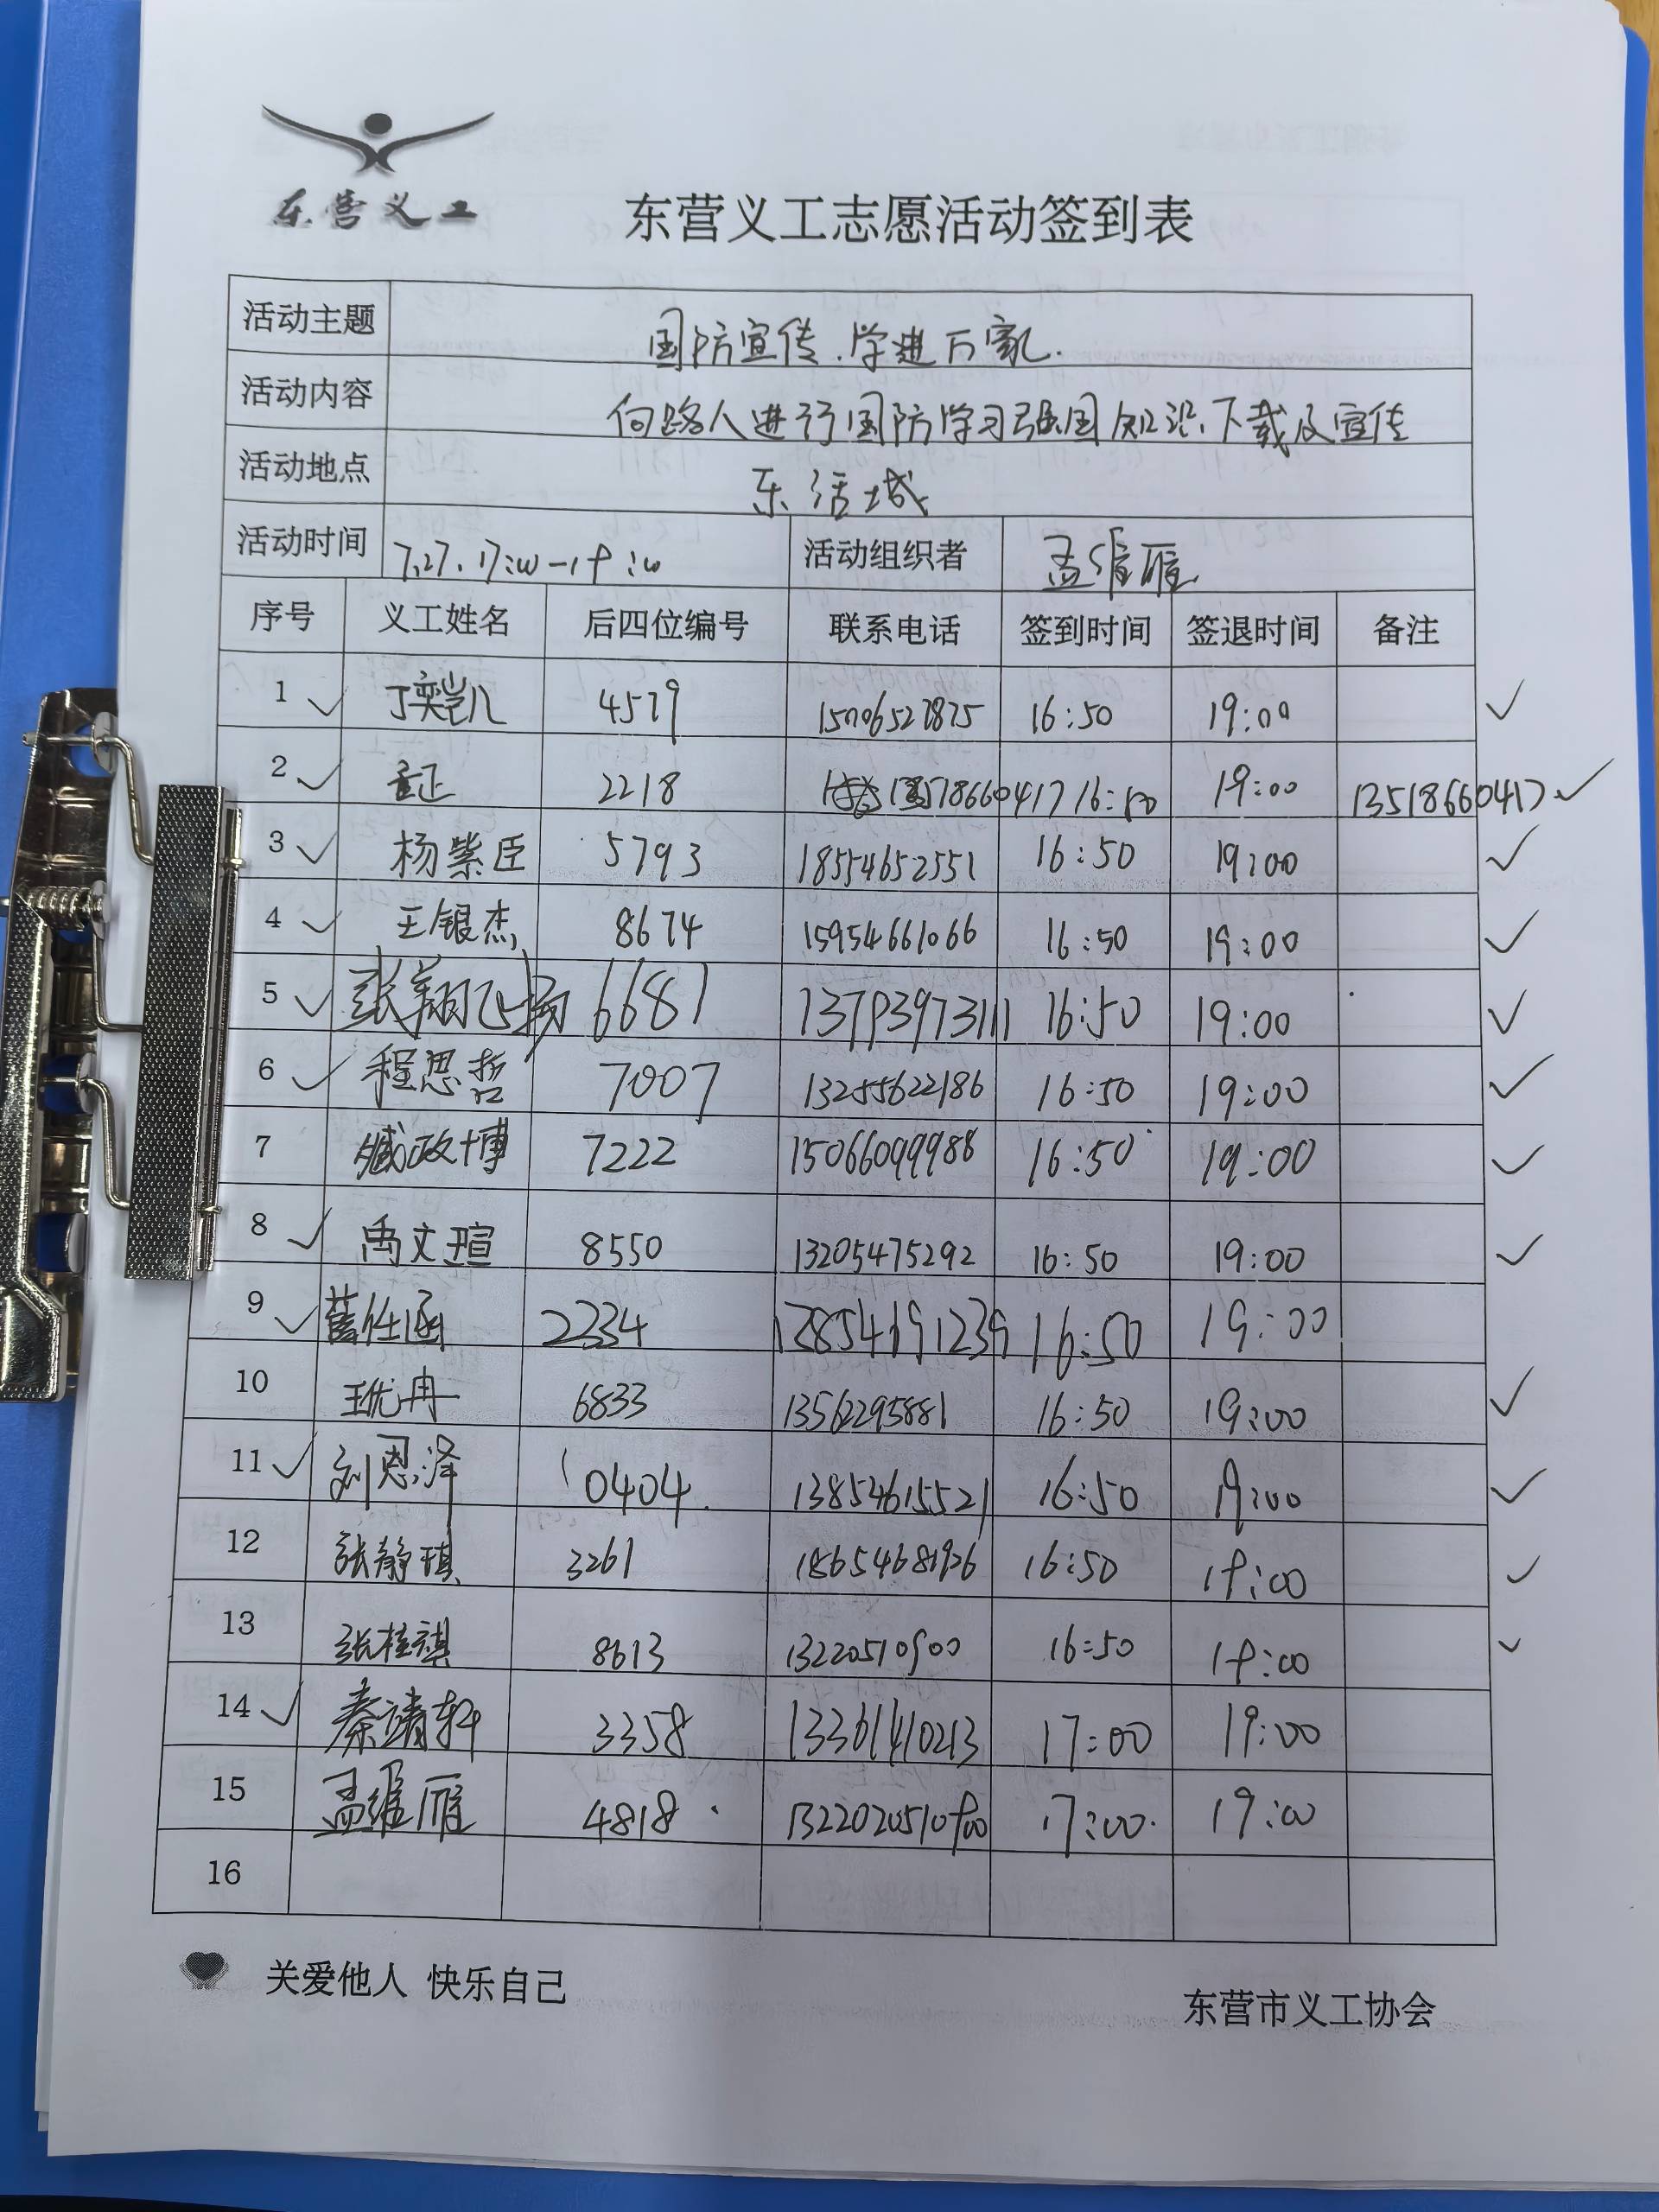 东营义工
东营义工志愿活动签到表
活动主题 国防宣传.学进万家.
活动内容 向路人进行国防学习强国知识下载及宣传
活动地点 东活城
活动时间 7.27.17:00-19:00 活动组织者 孟维雁
序号 义工姓名 后四位编号 联系电话 签到时间 签退时间 备注
1 丁奕岂凡 4579 15006527875 16:50 19:00
2 2218 13518660417 16:50 19:00 13518660417
3 杨紫臣 5793 18554652551 16:50 19:00
4 王银杰 8674 15954661066 16:50 19:00
5 张翔飞扬 6681 13793973111 16:50 19:00
6 程思哲 7007 13255622186 16:50 19:00
7 臧政博 7222 15066099988 16:50 19:00
8 禹文瑄 8550 13205475292 16:50 19:00
9 2334 13854691239 16:50 19:00
10 王优冉 6833 13562295881 16:50 19:00
11 刘恩泽 0404 13854615521 16:50 19:00
12 张静琪 3261 18654681926 16:50 19:00
13 张桂祺 8613 13220510900 16:50 19:00
14 秦靖轩 3358 13361410213 17:00 19:00
15 孟维雁 4818 17:00 19:00
16
关爱他人 快乐自己
东营市义工协会